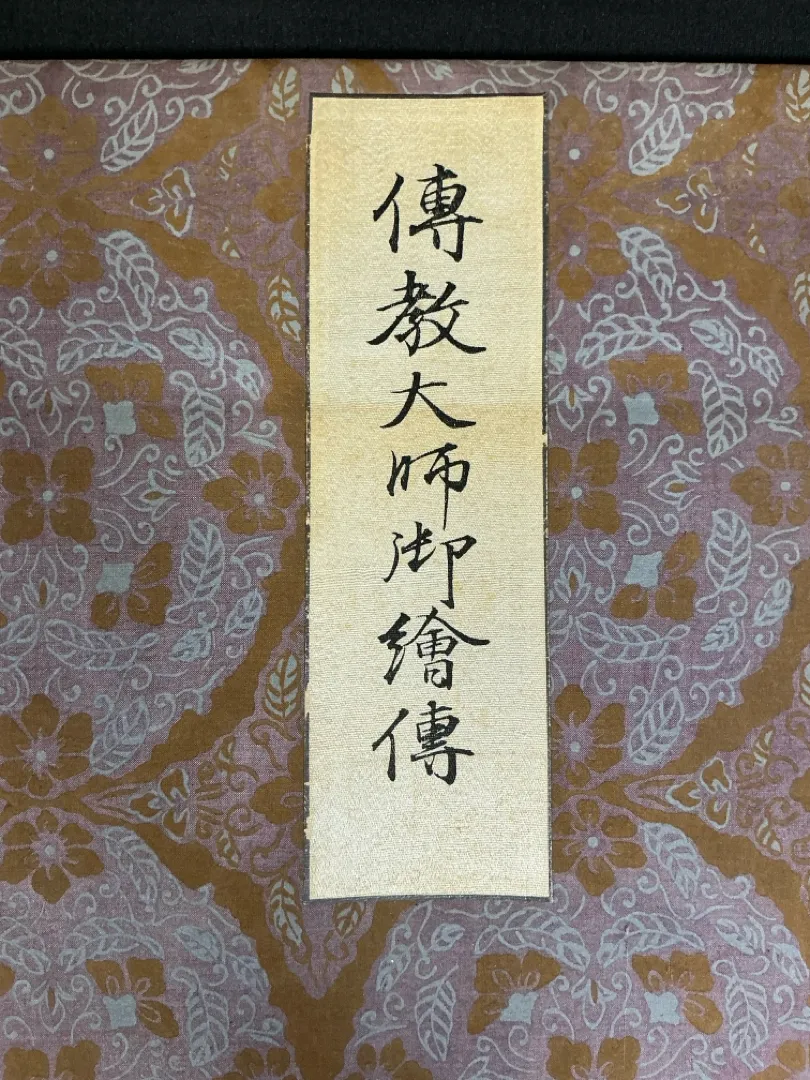 傳教大師御繪傳